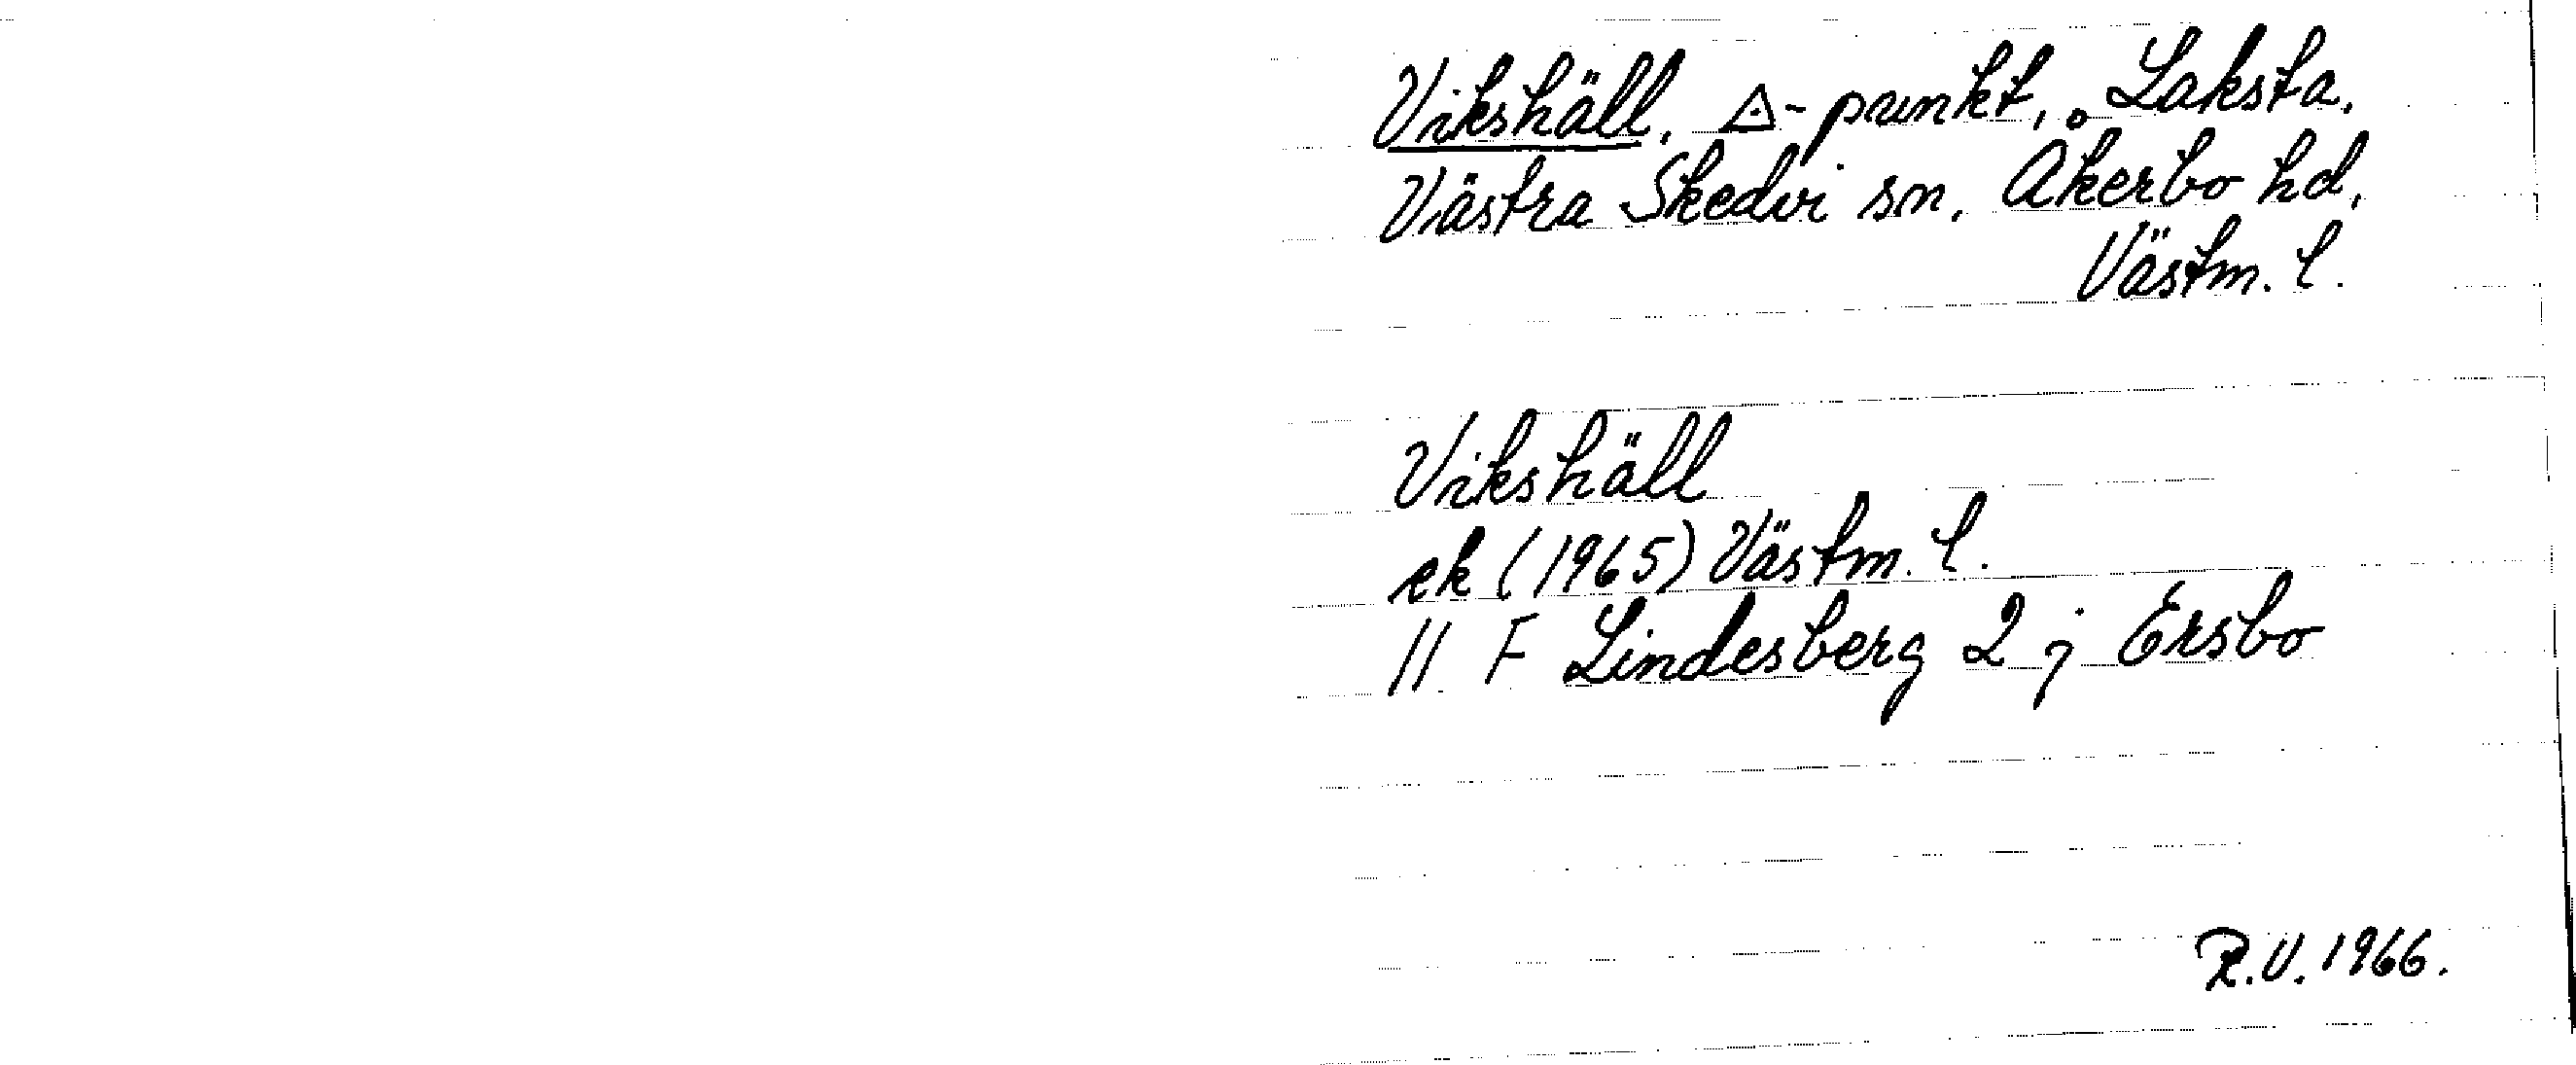 Vikshäll. △-punkt, Laksta.
Västra Skedvi sn. Åkerbo hd.
Västm. l.
Vikshäll
ek (1965) Västm. l.
11 F Lindesberg 2 j Ersbo
R.V. 1966.